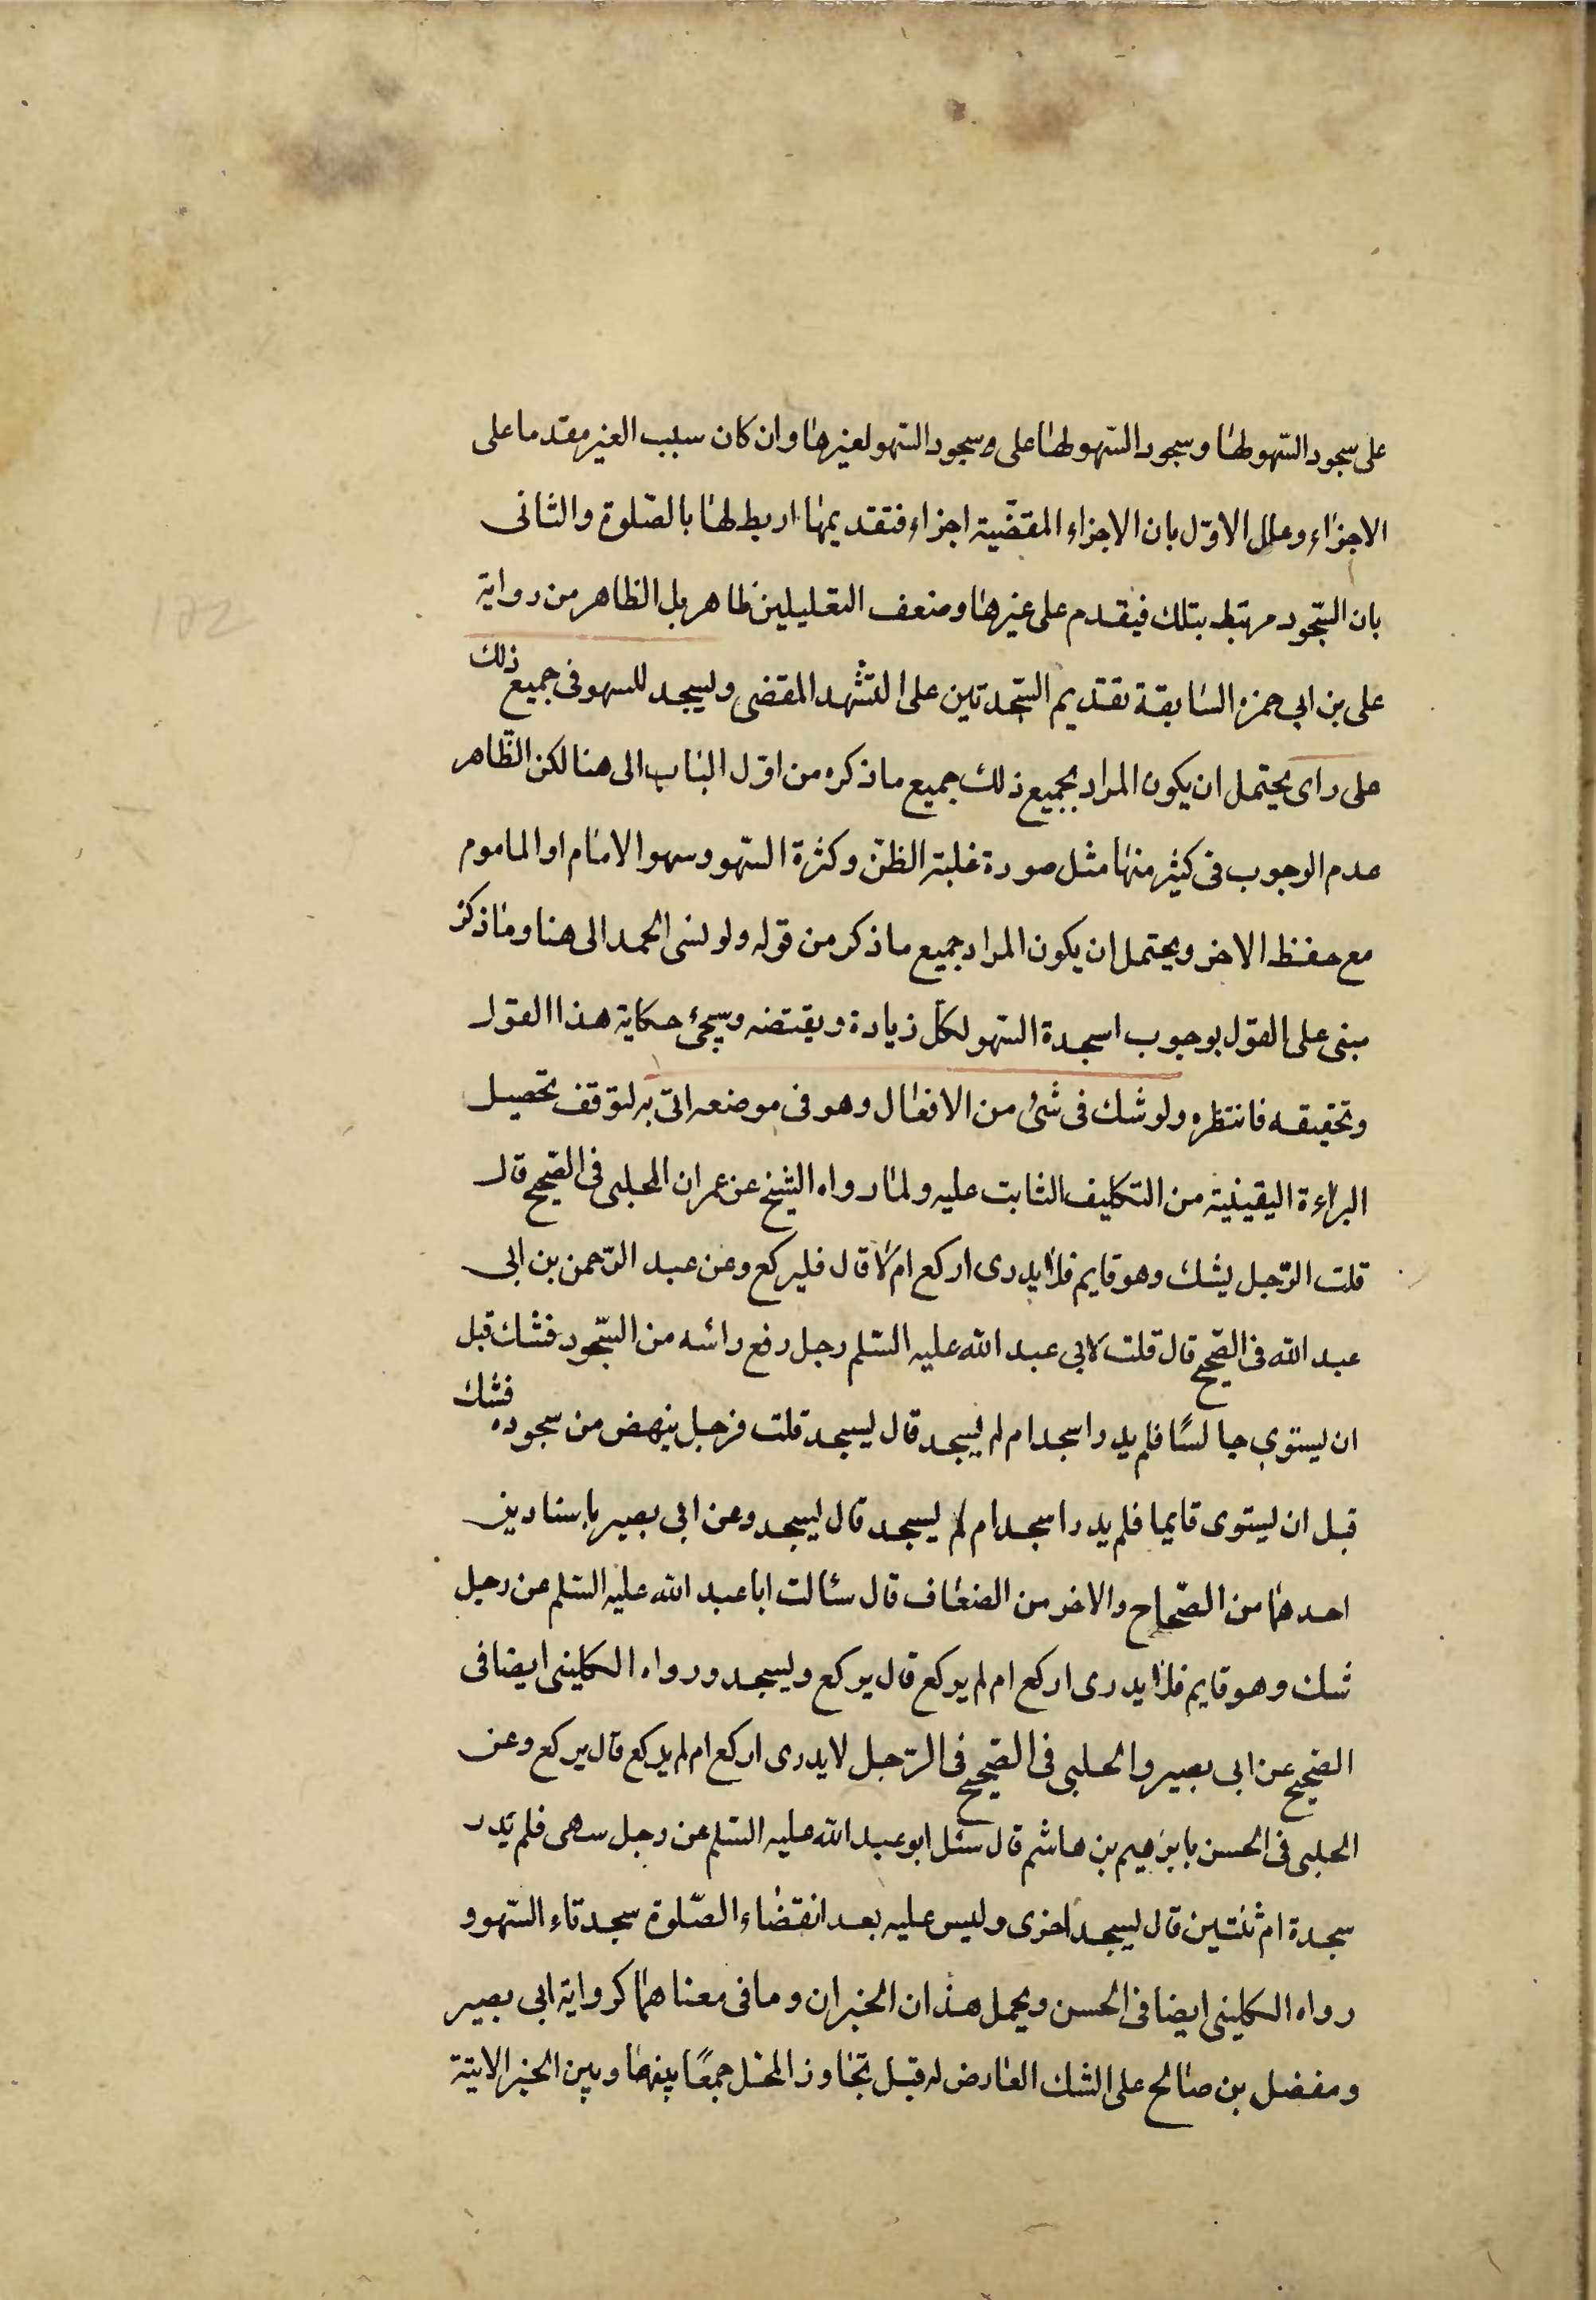 على سجود السهو لها وسجود السهو لها على وسجود السهو لغيرها وان كان سبب الغير مقدما على
الاجزاء وعلل الاوّل بان الاجزاء المقضّية اجزاء فتقديمها اربط لها بالصّلوة والثانى
بان السّجود مرتبط بتلك فيقدم على غيرها وضعف التعليلين ظاهر بل الظاهر من رواية
على بن ابى حمزه السابقة تقديم السّجدتين على التشهد المقضى وليسجد للسهو فى جميع ذلك
على راى يحتمل ان يكون المراد بجميع ذلك جميع ما ذكره من اوّل الباب الى هنا لكن الظّاهر
عدم الوجوب فى كثير منها مثل صورة غلبة الظنّ وكثرة السّهو وسهو الامام او الماموم
مع حفظ الاخر ويحتمل ان يكون المراد جميع ما ذكر من قوله ولو نسى الحمد الى هنا وما ذكر
مبنى على القول بوجوب اسجدة السّهو لكلّ زيادة ويقتضه وسيجئ حكاية هذا القول
وتحقيقه فانتظره ولو شك فى شئ من الافعال وهو فى موضعه اتى به لتوقف تحصيل
البراءة اليقينية من التكليف الثابت عليه ولما رواه الشيخ عن عمران الحلبى فى الصّحيح قال
قلت الرّجل يشك وهو قايم فلا يدرى اركع ام لا قال فليركع وعن عبد الرّحمن بن ابى
عبد الله فى الصّحيح قال قلت لابى عبد الله عليه السّلم رجل رفع رائسه من السّجود فشك قبل
ان يستوى جالسًا فلم يدر اسجد ام لم يسجد قال يسجد قلت فرجل ينهض من سجوده فشك
قبل ان يستوى قايما فلم يدر اسجد ام لم يسجد قال يسجد وعن ابى بصير باسنادين
احدهما من الصّحاح والاخر من الضعاف قال سئالت ابا عبد الله عليه السّلم عن رجل
شك وهو قايم فلا يدرى اركع ام لم يركع قال يركع وليسجد ورواه الكلينى ايضا فى
الصّحيح عن ابى بصير والحلبى فى الصّحيح فى الرّجل لا يدرى اركع ام لم يركع قال يركع وعن
الحلبى فى الحسن بابرهيم بن هاشم قال سئل ابو عبد الله عليه السّلم عن رجل سهى فلم يدر
سجدة ام ثنتين قال يسجد اخرى وليس عليه بعد انقضاء الصّلوة سجدتاء السّهو و
رواه الكلينى ايضا فى الحسن ويحمل هذان الخبران وما فى معناهما كرواية ابى بصير
ومفضل بن صالح على الشك العارض له قبل تجاوز المحل جمعًا بينها وبين الخبر الاتية